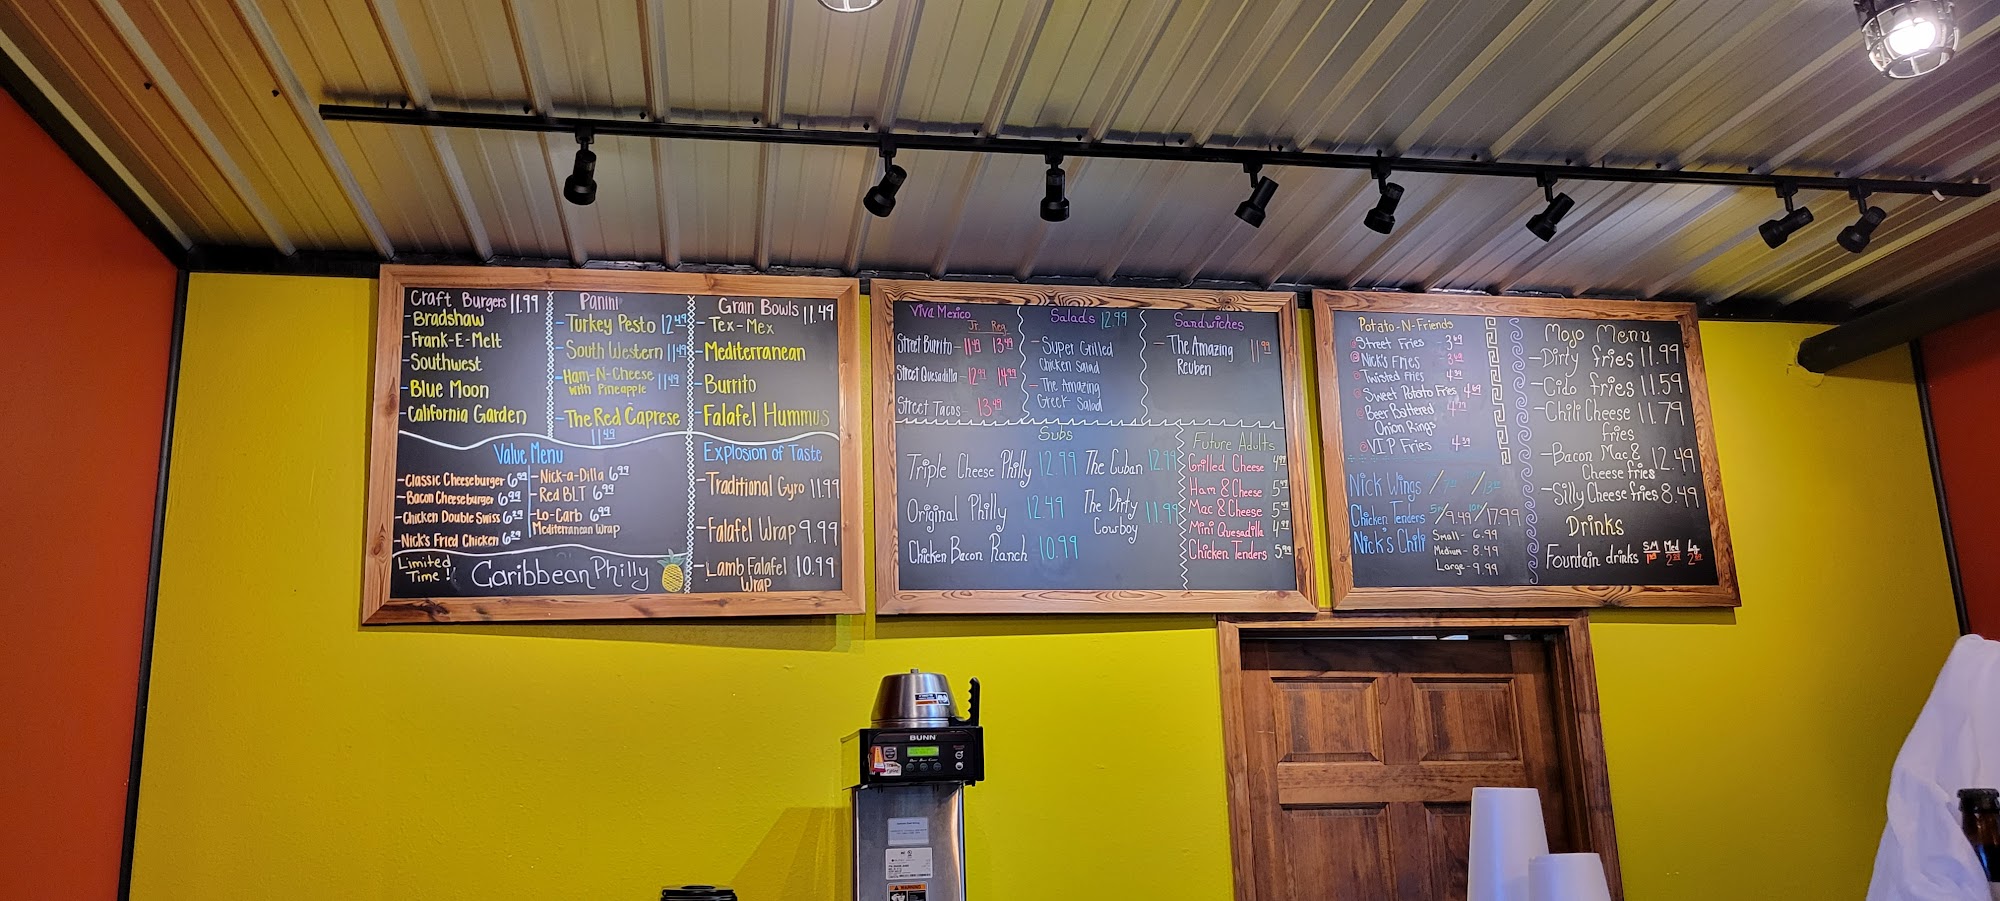 Craft Burgers 11.99
-Bradshaw
-Frank-E-Melt
-Southwest
-Blue Moon
-California Garden
Panini
-Turkey Pesto 12.49
-South Western 11.49
-Ham-N-Cheese 11.49
with Pineapple
-The Red Caprese
11.49
Grain Bowls 11.49
-Tex-Mex
-Mediterranean
-Burrito
-Falafel Hummus
Value Menu
-Classic Cheeseburger 6.99
-Bacon Cheeseburger 6.99
-Chicken Double Swiss 6.29
-Nick's Fried Chicken 6.29
-Nick-a-Dilla 6.99
-Red BLT 6.99
-Lo-Carb 6.99
Mediterranean Wrap
Explosion of Taste
-Traditional Gyro 11.99
-Falafel Wrap 9.99
-Lamb Falafel 10.99
Wrap
Limited
Time! Caribbean Philly
Viva Mexico
Jr. Reg.
Street Burrito- 11.49 13.49
Street Quesadilla- 12.99 14.99
Street Tacos- 13.49
Salads 12.99
-Super Grilled
Chicken Salad
-The Amazing
Greek Salad
Sandwiches
-The Amazing 11.99
Reuben
Subs
Triple Cheese Philly 12.99
Original Philly 12.49
Chicken Bacon Ranch 10.99
The Cuban 12.99
The Dirty 11.99
Cowboy
Future Adults
Grilled Cheese 4.99
Ham & Cheese 5.49
Mac & Cheese 5.49
Mini Quesadilla 4.99
Chicken Tenders 5.99
Potato-N-Friends
Street Fries - 3.69
Nick's Fries - 3.69
Twisted Fries 4.39
Sweet Potato Fries 4.69
Beer Battered 4.79
Onion Rings
V.I.P Fries 4.39
Nick Wings
Chicken Tenders 5pc/9.49 10pc/17.99
Nick's Chili Small - 6.99
Medium - 8.49
Large - 9.99
Mojo Menu
-Dirty fries 11.99
-Cido fries 11.59
-Chili Cheese 11.79
fries
-Bacon Mac & 12.49
Cheese fries
-Silly Cheese fries 8.49
Drinks
SM Med Lg
Fountain drinks
BUNN